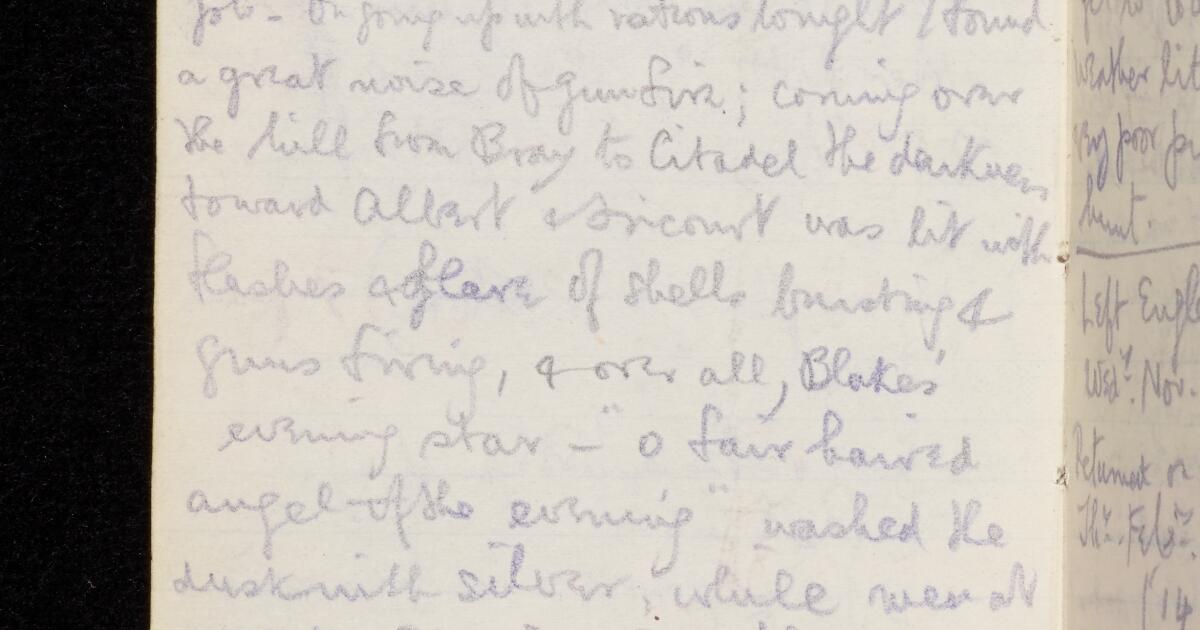 job - On going up with rations tonight I found
a great noise of gunfire; coming over
the hill from Bray to Citadel the darkness
toward Albert & Fricourt was lit with
flashes & glare of shells bursting &
guns firing, & over all, Blake's
evening star - "O fair haired
angel of the evening" washed the
dusk with silver, while
weather
very poor
hunt.
Left Engl
Wedy. Nov.
Returned
Thy. Feby.
(14